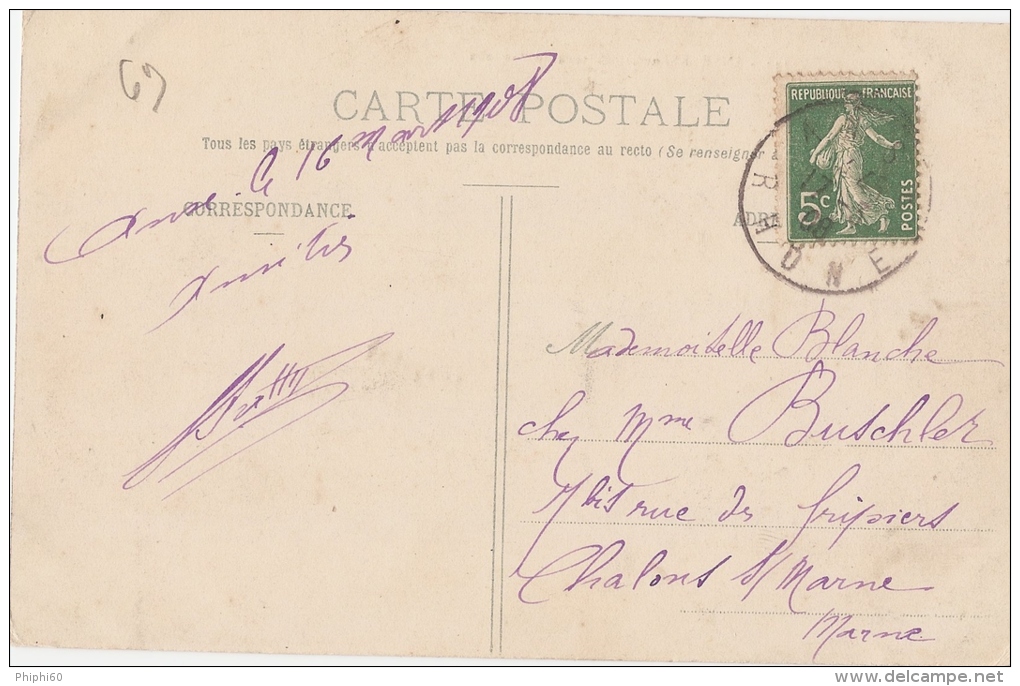 69
CARTE POSTALE
Tous les pays étrangers n'acceptent pas la correspondance au recto (Se renseigner à
le 16 mars 1908
CORRESPONDANCE
Amitiés
REPUBLIQUE FRANÇAISE
5c
POSTES
RHONE
ADR
Mademoiselle Blanche
chez Mme Buschler
7 bis rue des fripiers
Chalons s/ Marne
Marne
Phiphi60
delcampe.net